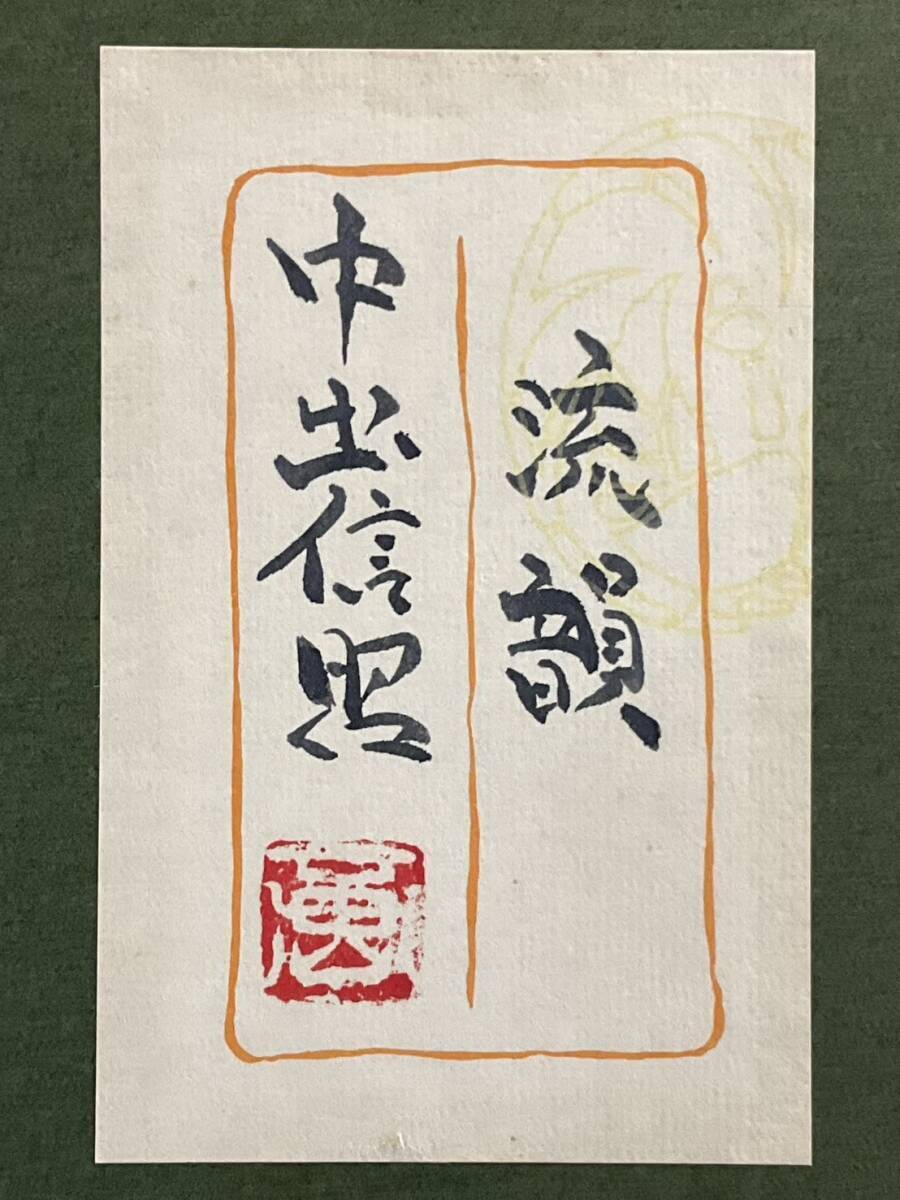 流韻
中出信昭